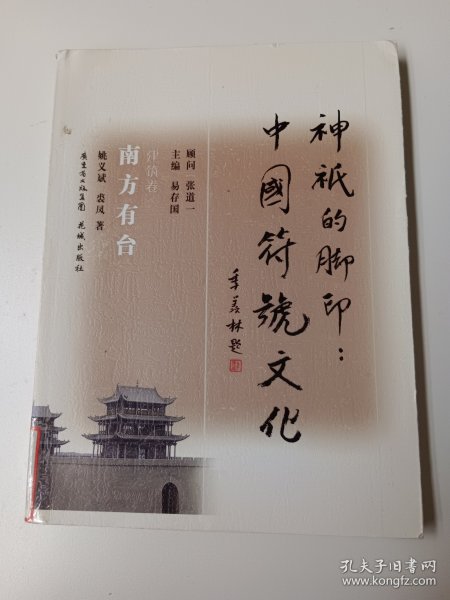 神祇的脚印：
中國符號文化
季羡林题
顾问 张道一
主编 易存国
建筑卷
南方有台
姚义斌 裘凤 著
广东省出版集团 花城出版社
孔夫子旧书网
www.kongfz.com